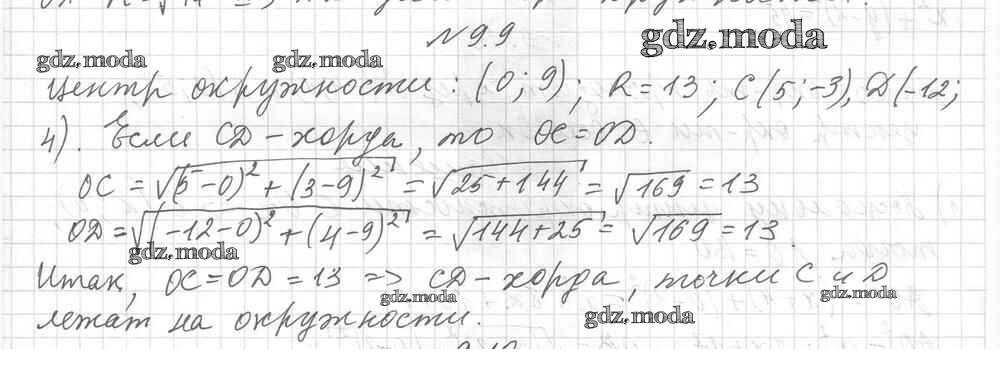 N 9.9
gdz.moda
gdz.moda gdz.moda
Центр окружности: (0; 9); R = 13; C(5; -3), D(-12;
4). Если CD - хорда, то OC = OD.
OC = √(5-0)² + (3-9)² = √25+144 = √169 = 13
OD = √(-12-0)² + (4-9)² = √144+25 = √169 = 13.
gdz.moda
Итак, OC = OD = 13 => CD - хорда, точки C и D
gdz.moda gdz.moda
лежат на окружности.
gdz.moda